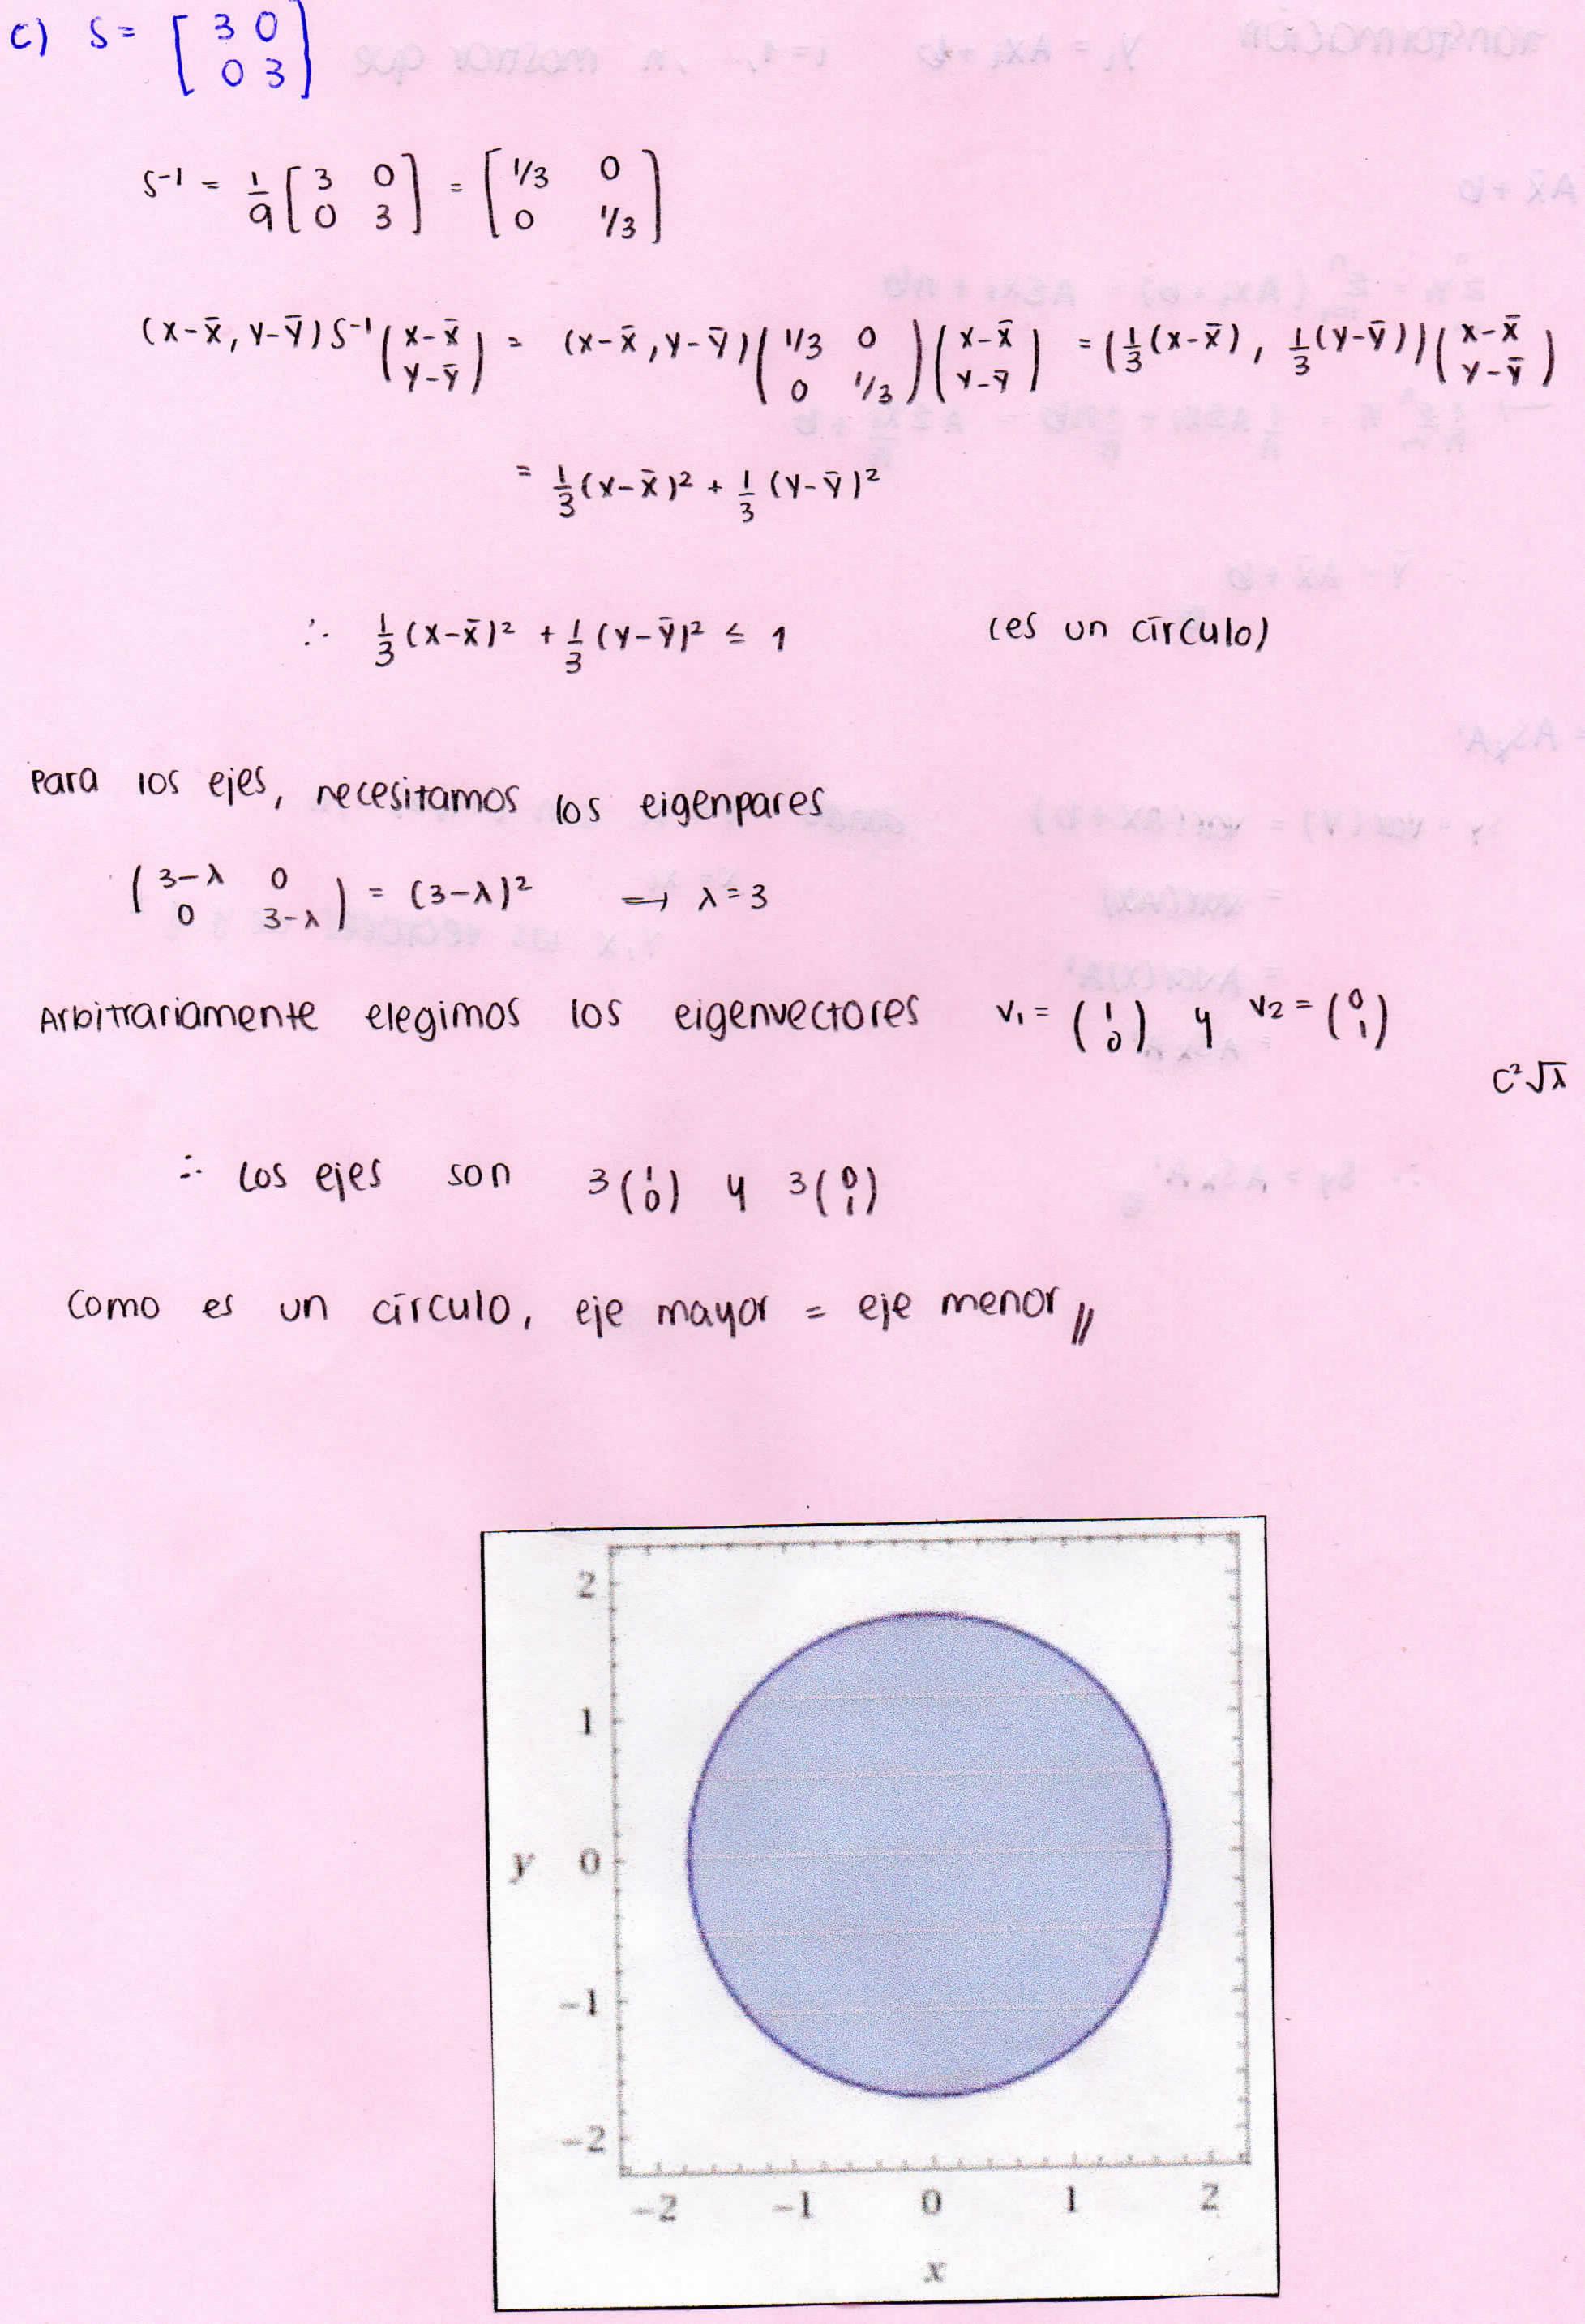 c) S = [3 0; 0 3]
S⁻¹ = 1/9 [3 0; 0 3] = [1/3 0; 0 1/3]
(x-x̄, y-ȳ) S⁻¹ (x-x̄; y-ȳ) = (x-x̄, y-ȳ) (1/3 0; 0 1/3) (x-x̄; y-ȳ) = (1/3(x-x̄), 1/3(y-ȳ)) (x-x̄; y-ȳ)
= 1/3 (x-x̄)² + 1/3 (y-ȳ)²
∴ 1/3 (x-x̄)² + 1/3 (y-ȳ)² ≤ 1 (es un círculo)
Para los ejes, necesitamos los eigenpares
(3-λ 0; 0 3-λ) = (3-λ)² → λ = 3
Arbitrariamente elegimos los eigenvectores v₁ = (1; 0) y v₂ = (0; 1)
c²√λ
∴ Los ejes son 3(1; 0) y 3(0; 1)
Como es un círculo, eje mayor = eje menor //
2
1
y 0
-1
-2
-2 -1 0 1 2
x